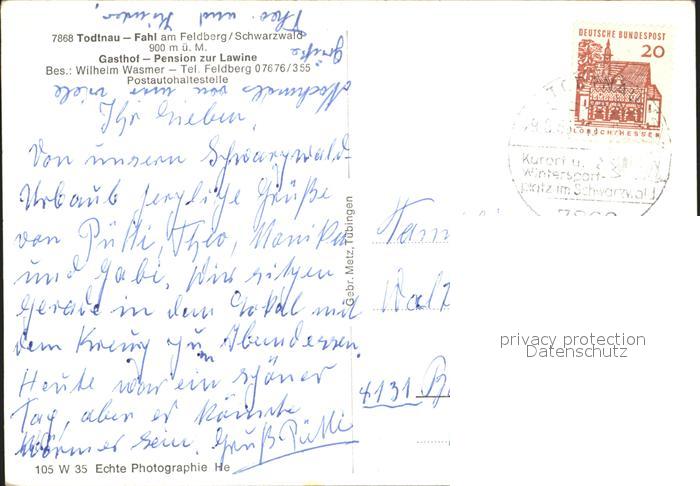 7868 Todtnau – Fahl am Feldberg/Schwarzwald
900 m ü. M.
Gasthof – Pension zur Lawine
Bes.: Wilhelm Wasmer – Tel. Feldberg 07676/355
Postautohaltestelle
Nochmals von mir viele
Grüße
Theo und Kinder
Ihr Lieben,
Von unsern Schwarzwald-
Urlaub herzliche Grüße
von Pütti, Theo, Monika
und Gabi. Wir sitzen
gerade in dem Lokal mit
dem Kreuz zum Abendessen.
Heute war ein schöner
Tag, aber es könnte
wärmer sein. Gruß Pütti
105 W 35 Echte Photographie He
Gebr. Metz, Tübingen
DEUTSCHE BUNDESPOST
20
LORSCH/HESSEN
TODTNAU
Kurort u.
Wintersport-
platz im Schwarzwald
7868
Fam
4131
privacy protection
Datenschutz